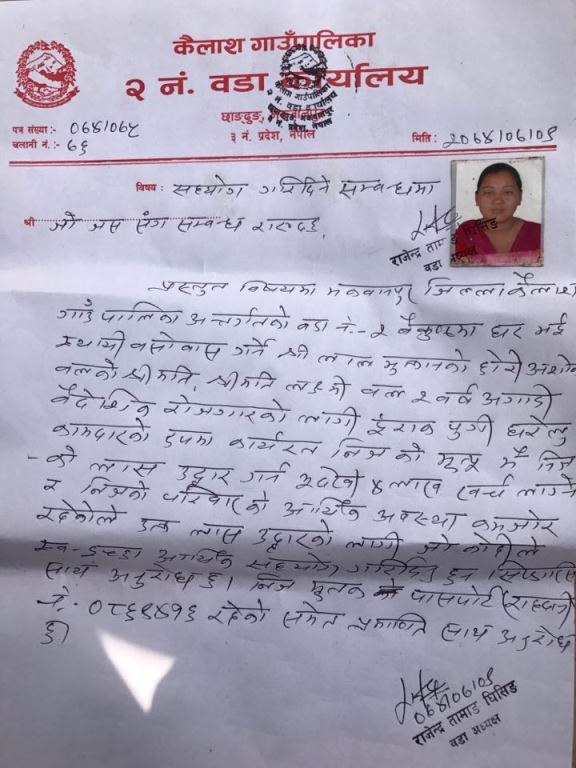 कैलाश गाउँपालिका
२ नं. वडा कार्यालय
छाङ्दुङ,
३ नं. प्रदेश, नेपाल
पत्र संख्या :-
चलानी नं. :- ६६
मिति :-
विषय : सहयोग गरिदिने सम्बन्धमा
श्री जो जस संग सम्बन्ध राख्दछ,
राजेन्द्र तामाङ घिसिङ
वडा अध्यक्ष
प्रस्तुत विषयमा मकवानपुर जिल्ला कैलाश
गाउँपालिका अन्तर्गतको वडा नं.- २ बैकुण्ठमा घर भई
स्थायी बसोबास गर्ने श्री लाल को छोरा अशोक
को श्रीमति, श्रीमति लक्ष्मी २ वर्ष अगाडी
बैदेशिक रोजगारको लागी ईराक पुगी घरेलु
कामदारको रुपमा कार्यरत निज को मृत्यु भै निज
को लास उद्दार गर्न ४ लाख खर्च लाग्ने
र निजको परिवारको आर्थिक अवस्था कमजोर
रहेकोले उक्त लास उद्दारको लागी जो कोहीले
स्व-इच्छा आर्थिक सहयोग गरिदिनु हुन सिफारिस
साथ अनुरोध छ। निज मृतक को पासपोर्ट (राहदानी)
नं. रहेको समेत प्रमाणित साथ अनुरोध
छ।
राजेन्द्र तामाङ घिसिङ
वडा अध्यक्ष